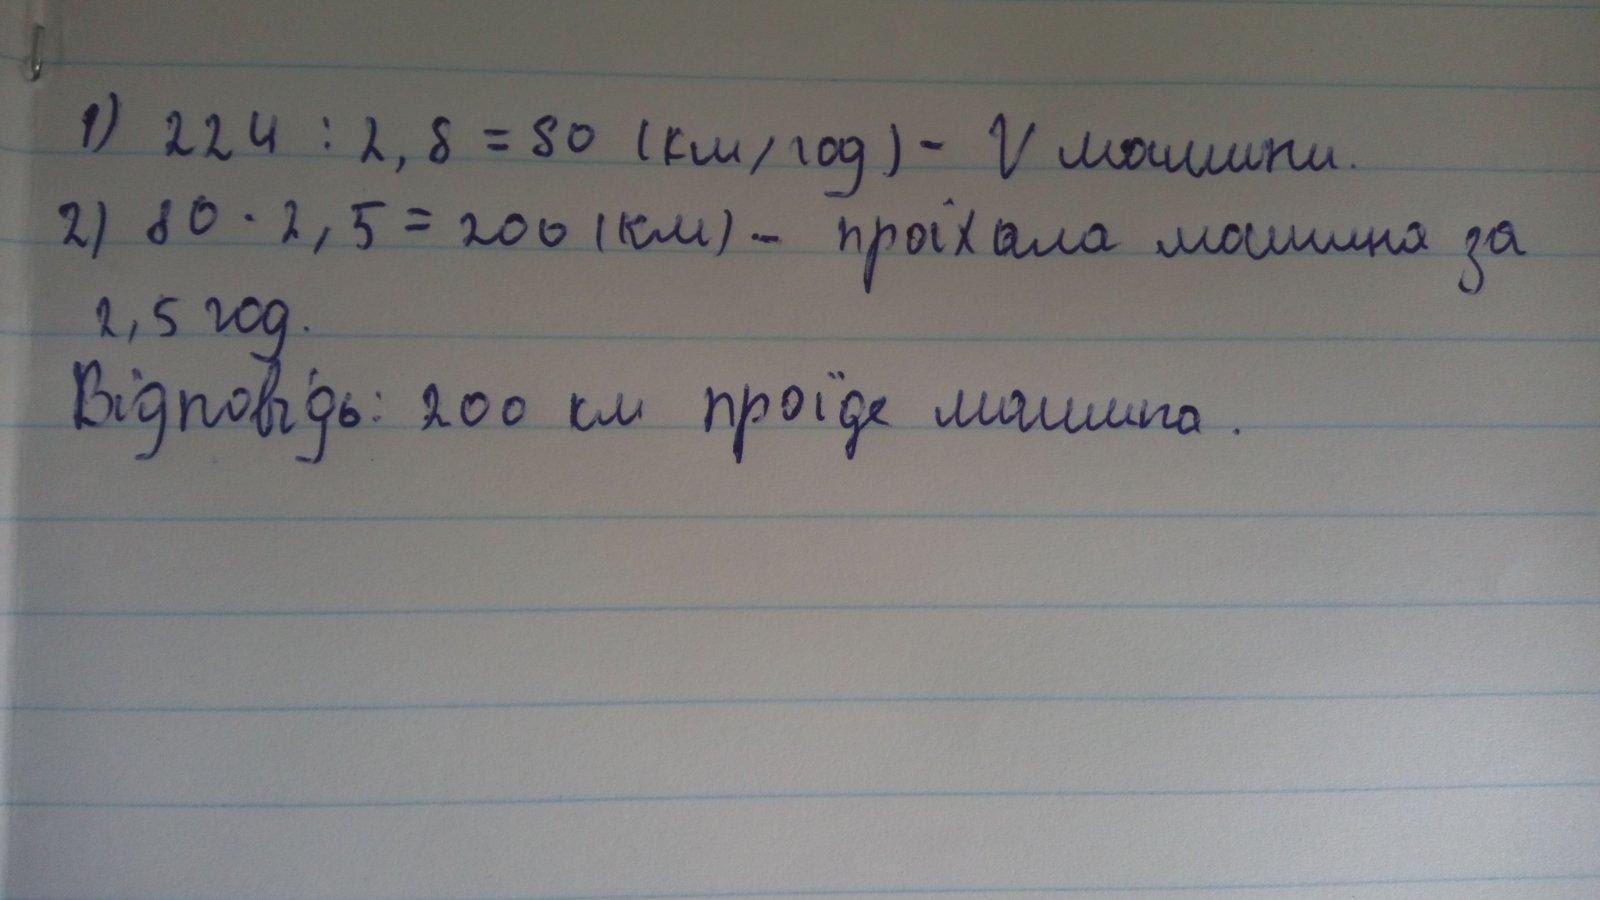 1) 224 : 2,8 = 80 (км/год) - V машини.
2) 80 · 2,5 = 200 (км) - проїхала машина за
2,5 год.
Відповідь: 200 км проїде машина.